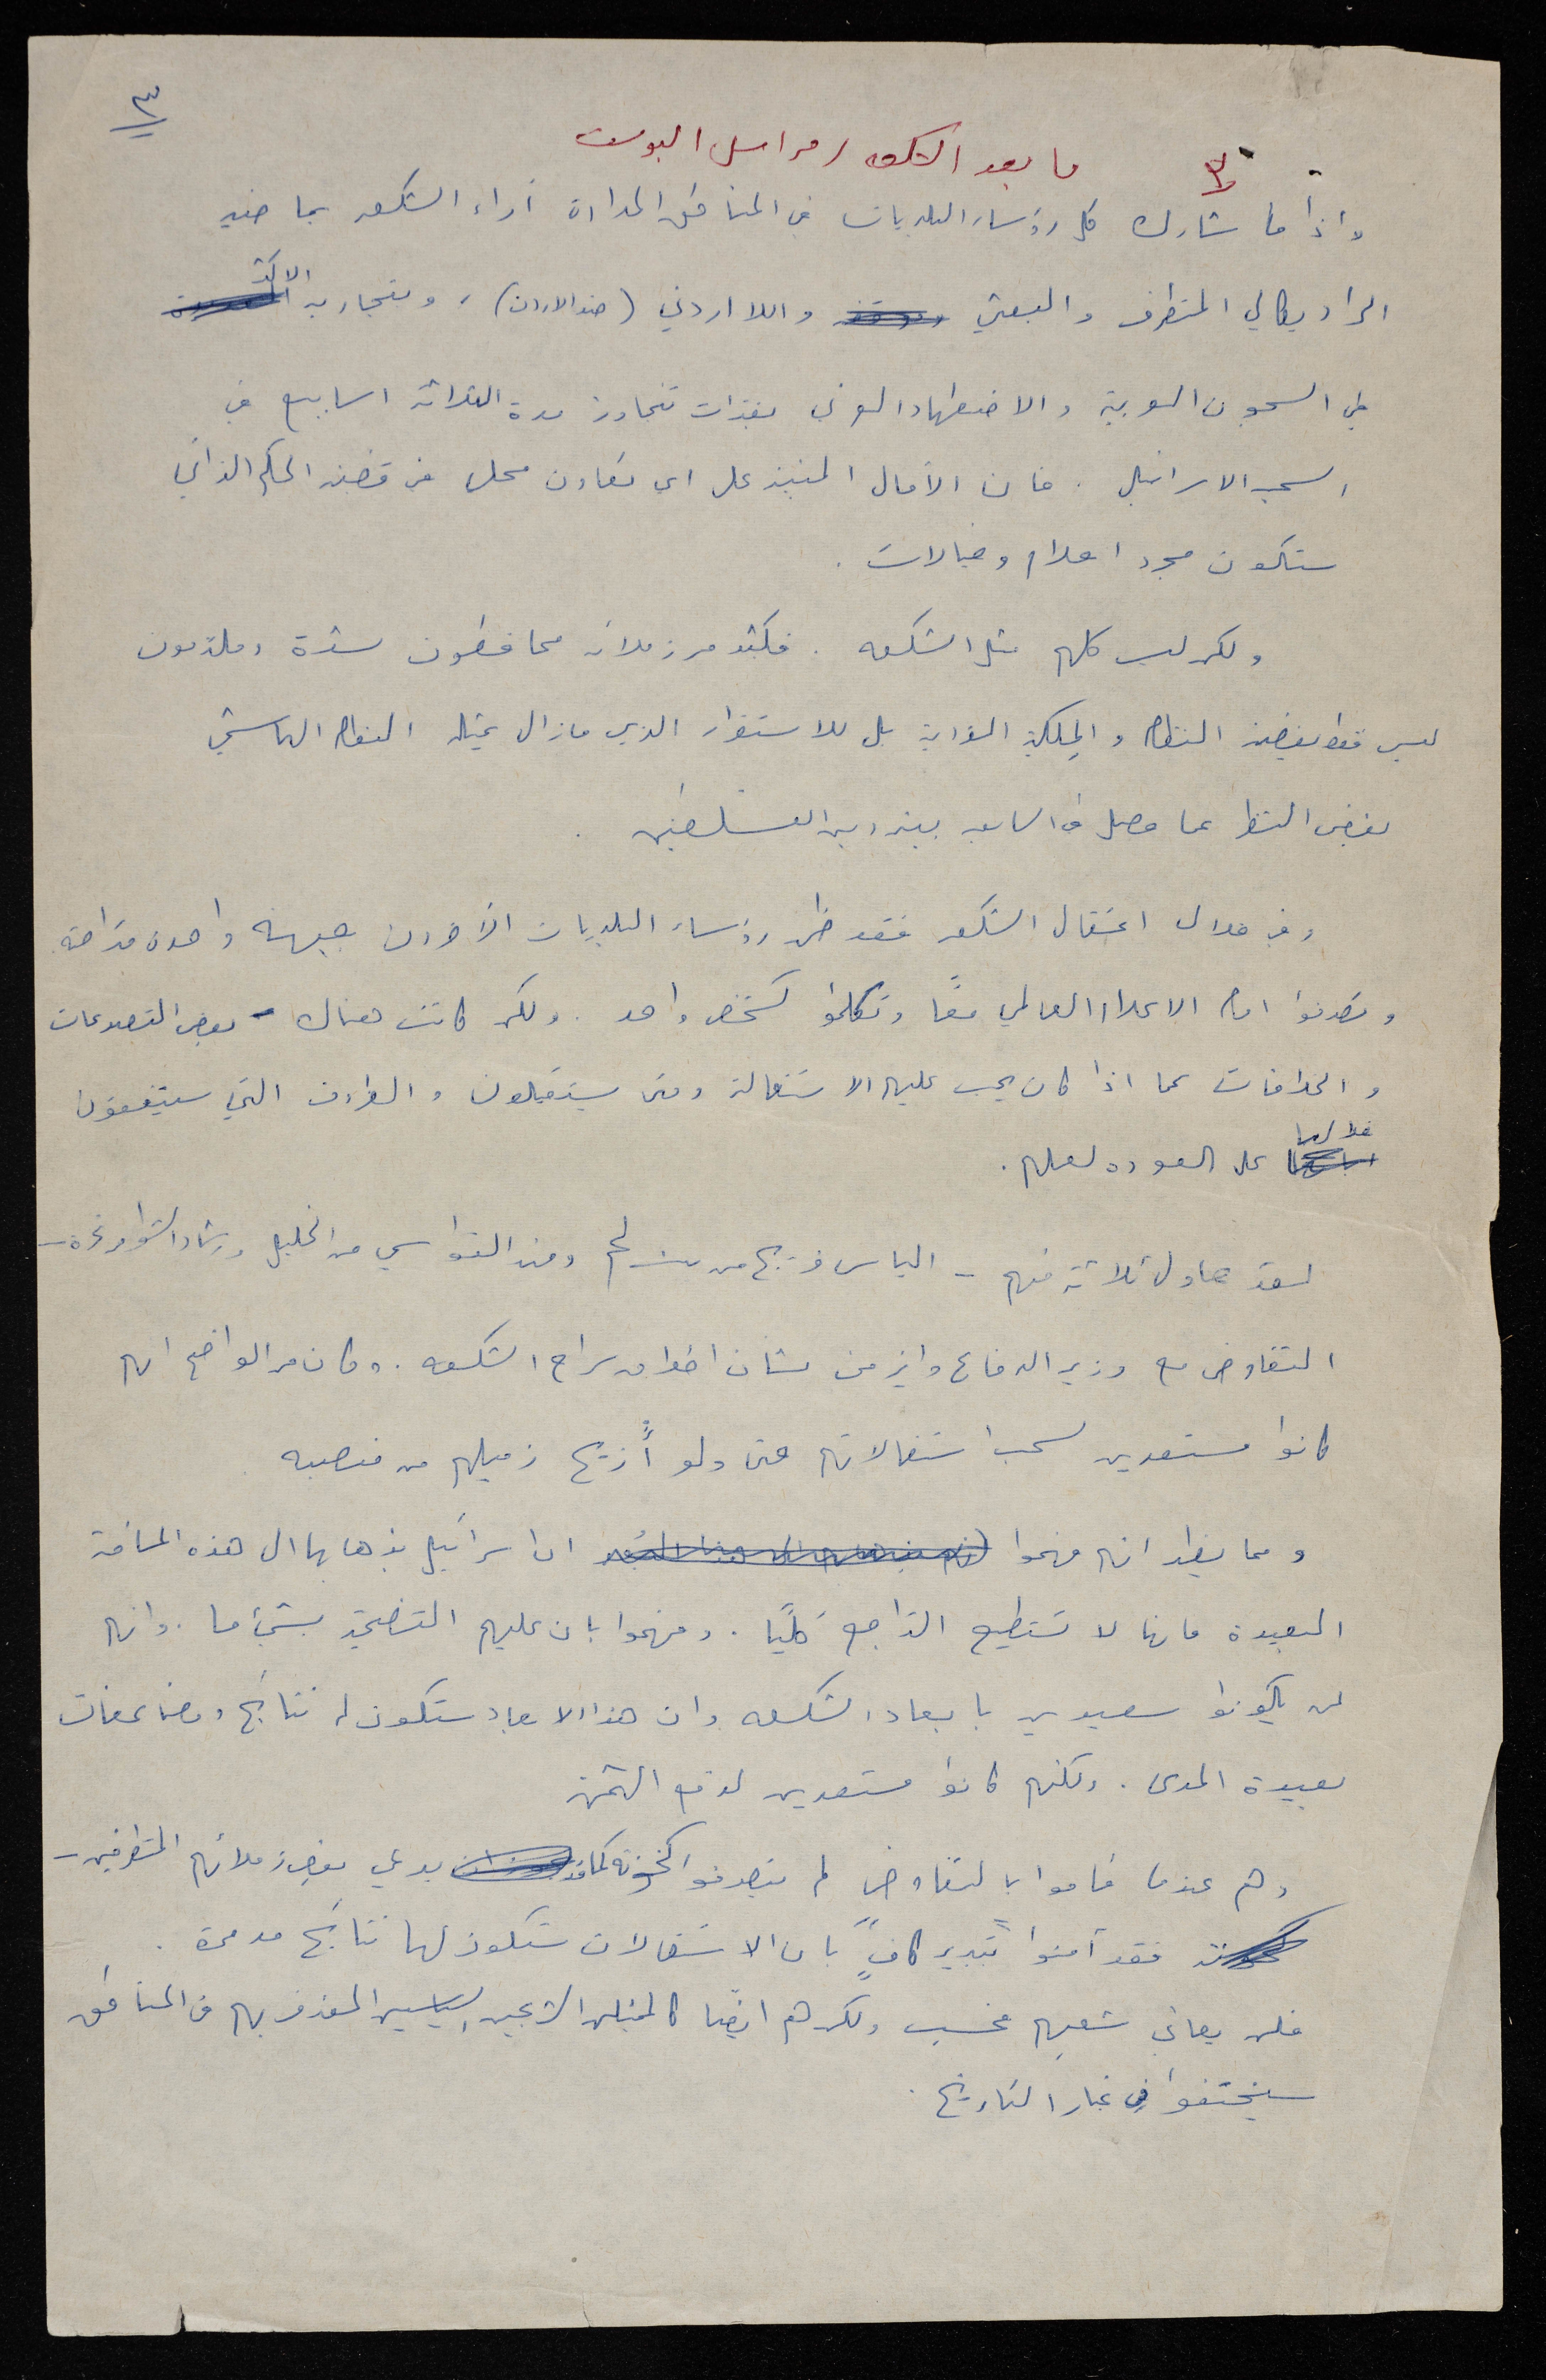 ٣
ما بعد الشكعه / مراسل البوست
واذا ما شارك كل رؤساء البلديات في المناطق المدارة آراء الشكعه بما فيه
الراديكالي المتطرف والبعثي واللا اردني (ضد الاردن)، وبتجاربه الاكثر
في السجون العربية والاضطهاد العربي بفترات تتجاوز مدة الثلاثة اسابيع في
السجن الاسرائيلي. فان الآمال المبنية على اي تعاون محلي في قضية الحكم الذاتي
ستكون مجرد احلام وخيالات.
ولكن ليس كلهم مثل الشكعه. فكثير من زملائه محافظون بشدة وملتزمون
ليس فقط بقضية النظام والملكية الفردية بل للاستقرار الذي مازال يمثله النظام الهاشمي
بغض النظر عما حصل في السابق بينه وبين الفلسطينين.
وفي خلال اعتقال الشكعه فقد ظهر رؤساء البلديات الآخرون جبهة واحدة متراصة
وتصرفوا امام الاعلام العالمي معًا وتكلموا كشخص واحد. ولكن كانت هناك - بعض التصدعات
والخلافات عما اذا كان يجب عليهم الاستقالة ومتى يستقيلون والظروف التي سيتفقون
خلالها على العودة لعملهم.
لقد حاول ثلاثة منهم - الياس فريج من بيت لحم وفهد القواسمي من الخليل ورشاد الشوا من غزة -
التفاوض مع وزير الدفاع وايزمن بشان اطلاق سراح الشكعه. وكان من الواضح انهم
كانوا مستعدين لسحب استقالاتهم حتى ولو أُزيح زميلهم من منصبه
ومما يظهر انهم فهموا ان اسرائيل بذهابها الى هذه المسافة
البعيدة فانها لا تستطيع التراجع كليًا. وفهموا بان عليهم التضحية بشيء ما. وانهم
لن يكونوا سعيدين بابعاد الشكعه وان هذا الابعاد ستكون له نتائج ومضاعفات
بعيدة المدى. ولكنهم كانوا مستعدين لدفع الثمن
وهم عندما قاموا بالتفاوض لم يتصرفوا كخونة كما يدعي بعض زملائهم المتطرفين -
فقد آمنوا بان الاستقالات ستكون لها نتائج مدمرة.
فلن يعاني شعبهم فحسب ولكن هم ايضًا كالممثلين الشرعيين السياسيين المعترف بهم في المناطق
سيختفوا في غبار التاريخ.